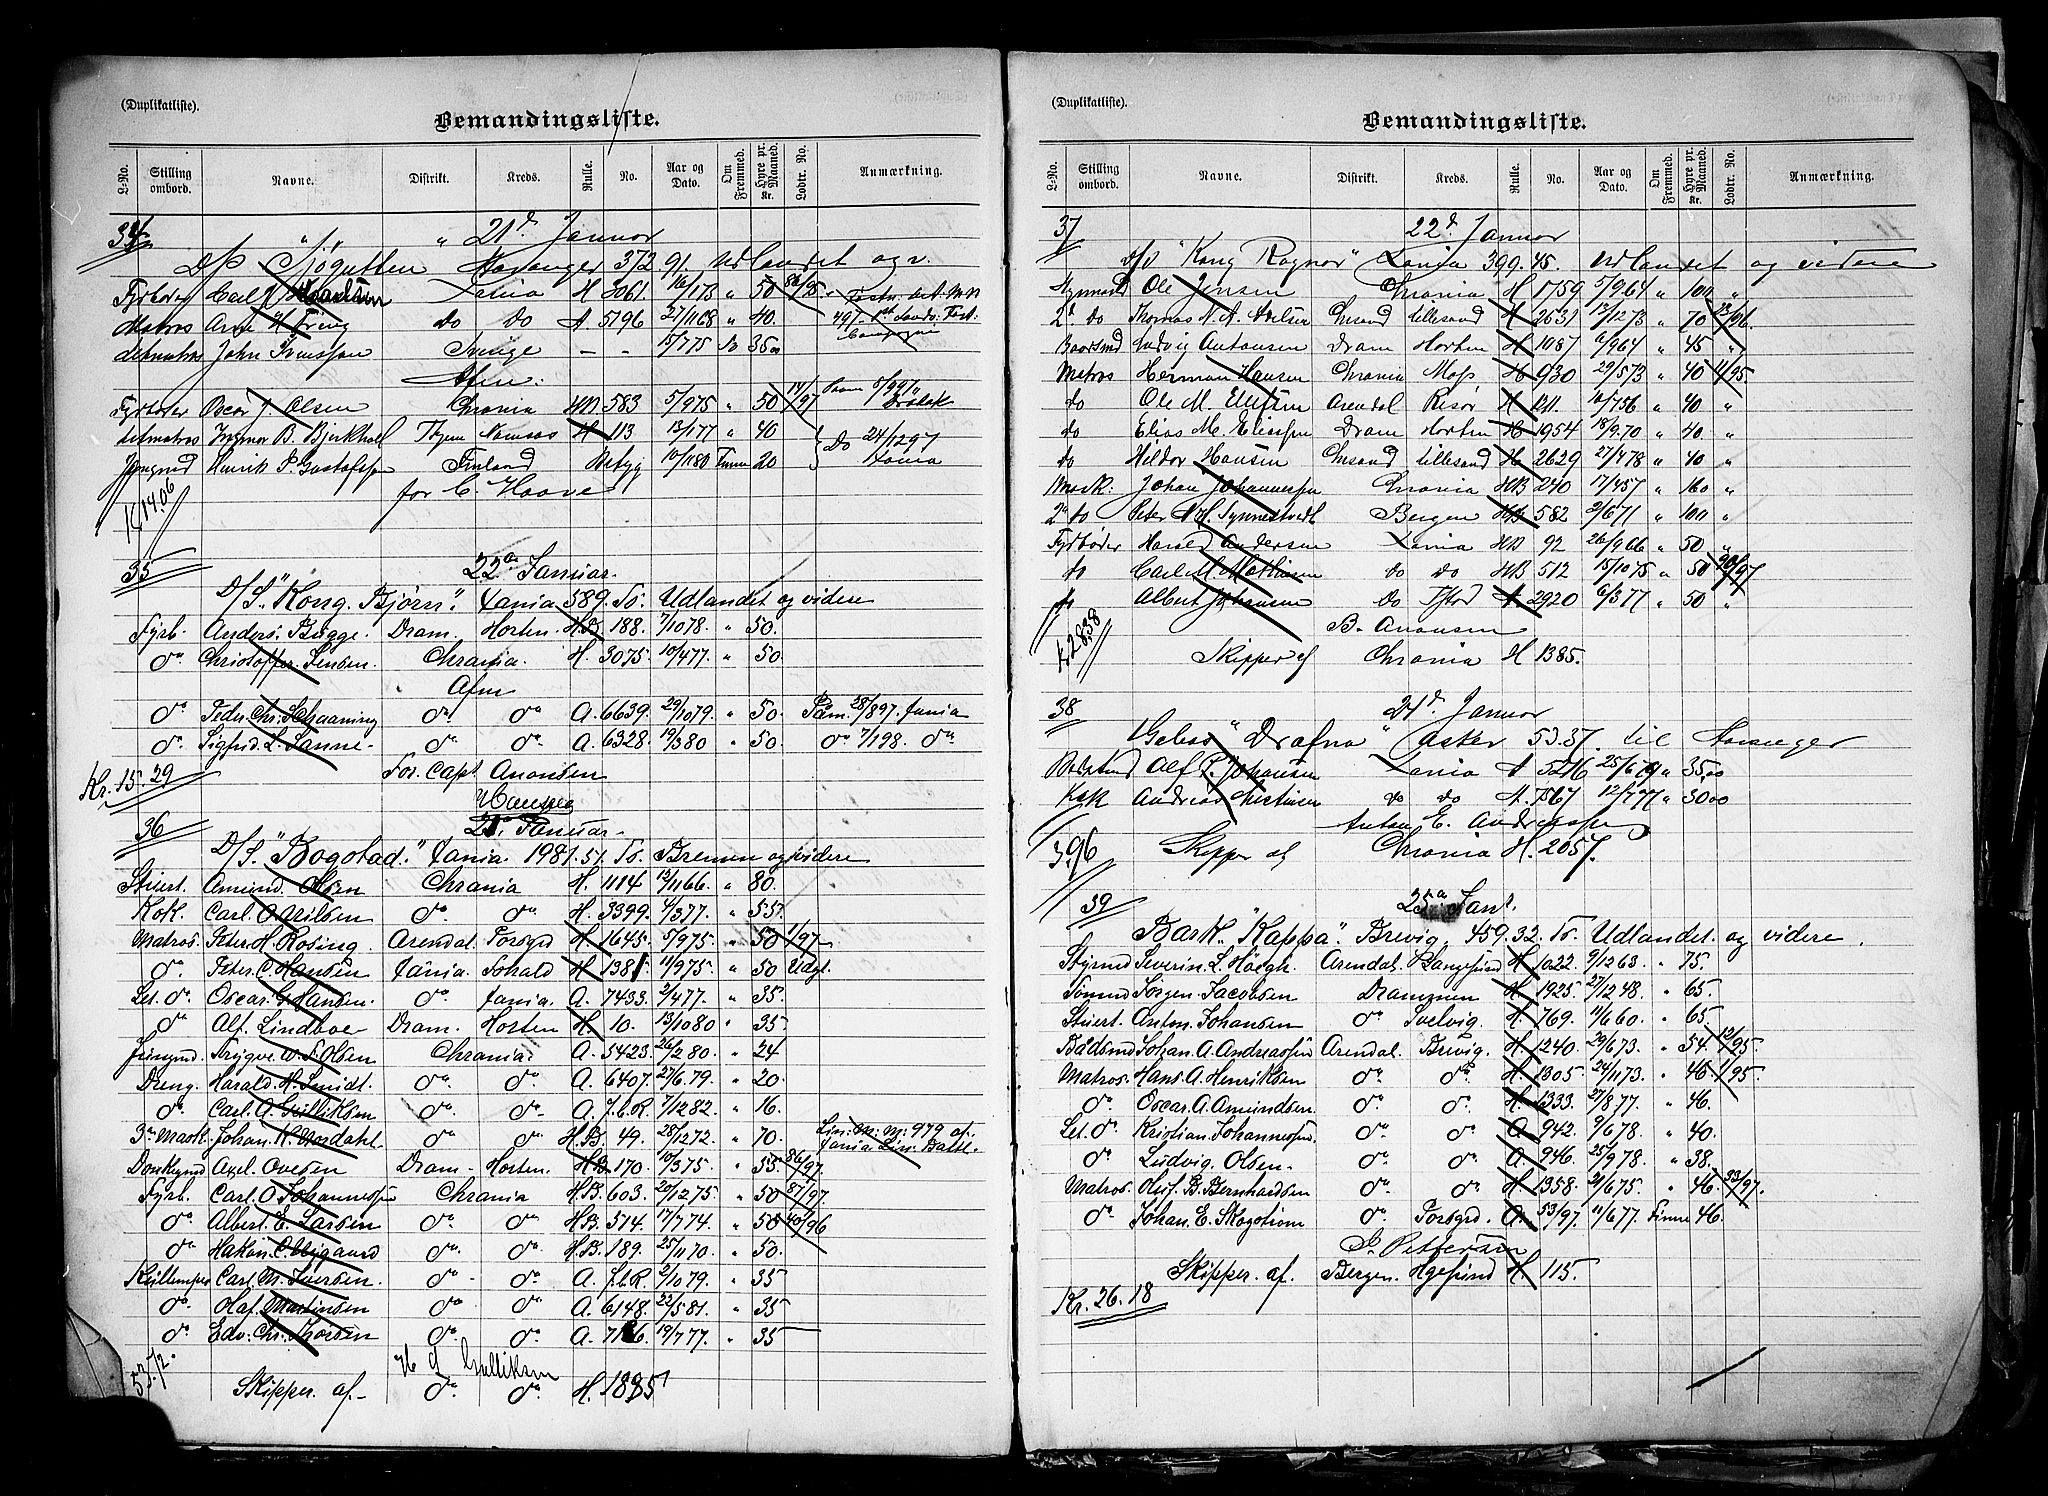 (Duplikatliste).
Bemandingsliste.
L-No. Stilling ombord. Navne. Distrikt. Kreds. Rulle. No. Aar og Dato. Om Fremmed. Hyre pr. Maaned. Kr. Lodtr. No. Anmærkning.
34 " 21d Januar
D/S "Sjøgutten" Stavanger 372 91. Udlandet og v.
Fyrbøder Carl Xania H 3061. 16/1 73 " 50 86/95
Matros Arne H do do A 5796 27/11 68 " 40.
Letmatros John Svensson Sverige — — 15/7 75 do 35
Afm:
Fyrbøder Oscar J. Olsen Chrania HB 583 5/9 75 " 50 14/97
Letmatros Ingmar B. Bjerkholl Thjem Namsos H 113 13/1 77 " 40
Jungmd Henrik P. Gustafsson Finland Betyg 10/11 80 Finne 20
for C. Haave
Kr 14.06
35 22de Januar.
D/S. "Kong. Bjørn". Xania 589. To. Udlandet og videre
Fyrb. Anders. Bugge. Dram. Horten. H.B. 188. 7/10 78. " 50.
do Christoffer. Jensen. Chrania. H. 3075. 10/4 77. " 50
Afm
do Peder. Chr. Schaaning do do A. 6639. 29/10 79. " 50. Paam. 28/8 97. Xania
do. Sigfrid. L. Sanne. do do A. 6328. 19/3 80 " 50. do 7/1 98. do
Kr. 15. 29 For. Capt. Anonsen
36 21de Januar.
D/S. "Bogstad." Xania. 1981. 51. To. Bremen og videre
Stuert. Amund. Olsen Chrania H. 1114 12/11 66. " 80.
Kok. Carl. O. Nilsen do. do H. 3399. 4/3 77. " 55.
Matros. Peter. H. Rosing. Arendal. Porsgrd H. 1645. 5/9 75. " 50 1/97
do. Peter. C. Hansen Xania. Sohald H. 1381 11/9 75. " 50 Udgt.
Let. do. Oscar. G. Hansen. do. Xania. A. 7433. 2/4 77. " 35.
do Alf. Lindboe Dram. Horten H. 10. 13/10 80 " 35
Jungmd. Trygve. W. S. Olsen Chrania. A. 5423. 26/2 80. " 24
Dreng. Harald. H. Smidt. do do. A. 6407. 27/6 79. " 20.
do. Carl. A. Gulliksen do do A. f.b.R. 7/12 82. " 16.
3de Mask. Johan. K. Nordahl. do do H.B. 49. 28/12 72. " 70. Lin. m. m. 979 af. Xania Lin. Batl.
Donkymd Axel. Ovesen Dram. Horten. HB 170. 10/3 75. " 55. 86/97.
Fyrb. Carl. O. Johannessen Chrania H.B. 603. 29/12 75. " 50 87/97.
do Albert. E. Larsen do. do. H.B. 514. 17/7 74. " 50 40/96
do Hakon. C. Nygaard do do. H.B. 189. 25/11 70. " 50.
Kullemper Carl. M. Iversen. do do. A. f.b.R. 2/10 79. " 35
do. Olaf. Martinsen do do. A. 6148. 22/5 81. " 35
do. Edv. Chr. Thorsen do do. A. 19/7 77. " 35
53.72 H G Gulliksen
Skipper. af. do. do. H. 1885
(Duplikatliste).
Bemandingsliste.
L-No. Stilling ombord. Navne. Distrikt. Kreds. Rulle. No. Aar og Dato. Om Fremmed. Hyre pr. Maaned. Kr. Lodtr. No. Anmærkning.
37 22d Januar
D/S "Kong Ragnar" Xania 399. 45. Udlandet og videre
Styrmand Ole Jensen Chrania H 1759 5/9 64 " 100 "
2d do Thomas N. A. Chrsand Lillesand H 2631 12/12 73 " 70 13/96.
Baadsmd Ludvig Antonsen Dram Horten H 1087 6/9 64 " 45 "
Matros Herman Hansen Chrania Moss H 930 29/5 73 " 40 4/95.
do Ole M. Ellefsen Arendal Risør H 1211. 10/7 56 " 40 "
do Elias M. Eliassen Dram Horten H 1954 18/9 70 " 40 "
do Hildor Hansen Chrsand Lillesand H 2629 27/4 78 " 40 "
1 Mask: Johan Johannessen Chrania HB 240 17/4 57 " 160 "
2d do Peter N. H. Synnestvedt Bergen HB 582 2/6 71 " 100 "
Fyrbøder Harald Andersen Xania HB 92 26/9 66 " 50 "
do Carl M. Mathisen do do HB 512 15/10 75 " 50 90/97
do Albert Johansen do A 2920 6/3 77 " 50 "
Kr 28.38 B. Anonsen
Skipper af Chrania H 1385.
38 21d Januar
Galeas "Drafna" Asker 53.37. til Stavanger
Bedstmd Alf P. Johansen Xania A 5216 25/6 79 " 35,00
Kok Andreas Christiansen do do A. 7567 12/7 77 " 30 00
Anton E. Andreassen
3,96 Skipper af Chrania H. 2057.
39 25de Jan.
Bark. "Kappa". Brevig. 459. 32. To. Udlandet. og videre.
Styrmd Severin. L. Høegh. Arendal. Langesund H. 1022. 9/12 63. " 75.
Tømmd Jørgen. Jacobsen Drammen H. 1925. 27/12 48. " 65.
Stuert. Anton. Johansen do Svelvig. H. 769. 11/6 60. " 65
Baadsmd Johan. A. Andreassen Arendal. Brevig. H. 1240. 29/6 73. " 54. 12/95.
Matros. Hans. A. Henriksen do do H. 1305. 24/11 73. " 46 1/95.
do. Oscar. A. Amundsen. do do. H. 1333. 27/8 77. " 46.
Let. do. Kristian. Johannessen do. do A. 942. 9/6 78. " 40.
do. Ludvig. Olsen. do. do. A. 946. 25/9 78. " 38.
Matros. Oluf. B. Bernhardsen do. do. H. 1358. 21/6 75. " 46. 23/97.
do. Johan. E. Skogstrøm do. Porsgrd. A. 53/97. 11/6 77. Finne 46.
Pettersen
Skipper. af. Bergen. Hgesund H. 115.
Kr. 26. 18